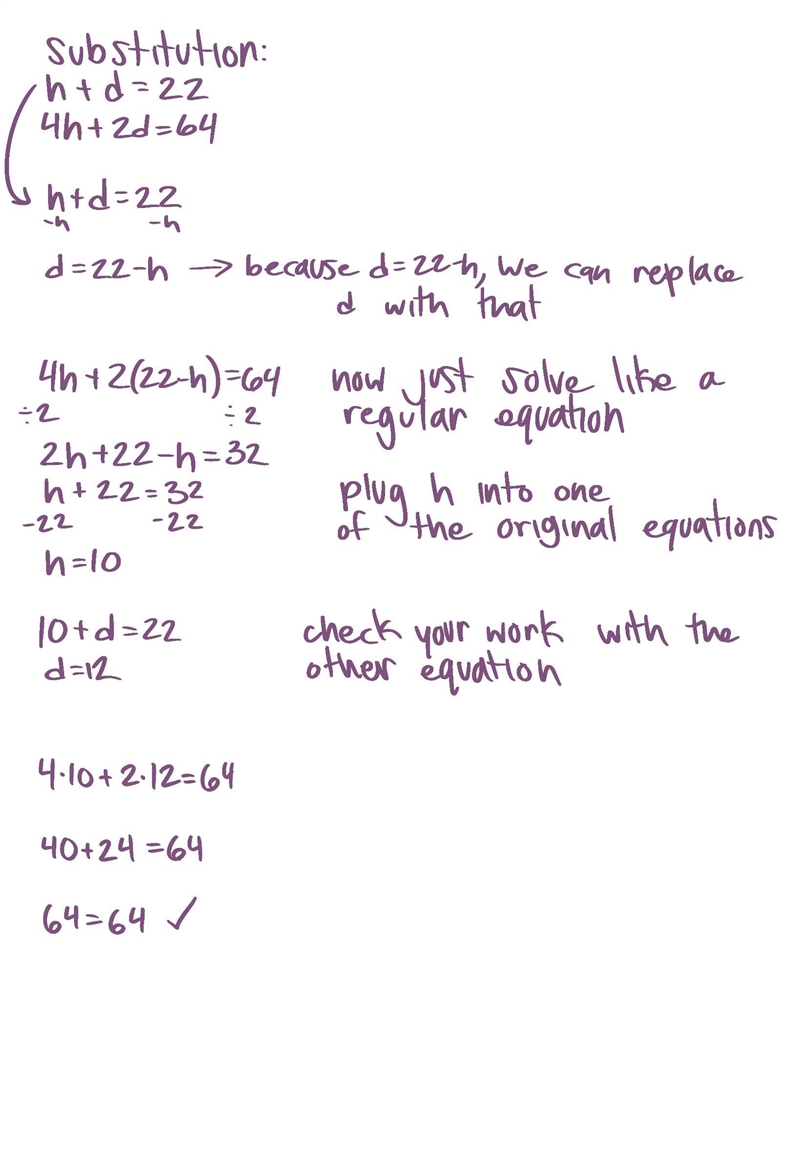 substitution:
h+d=22
4h+2d=64
h+d=22
-h -h
d=22-h → because d=22-h, we can replace
d with that
4h+2(22-h)=64 now just solve like a
÷2 ÷2 regular equation
2h+22-h=32
h+22=32 plug h into one
-22 -22 of the original equations
h=10
10+d=22 check your work with the
d=12 other equation
4·10+2·12=64
40+24=64
64=64 ✓